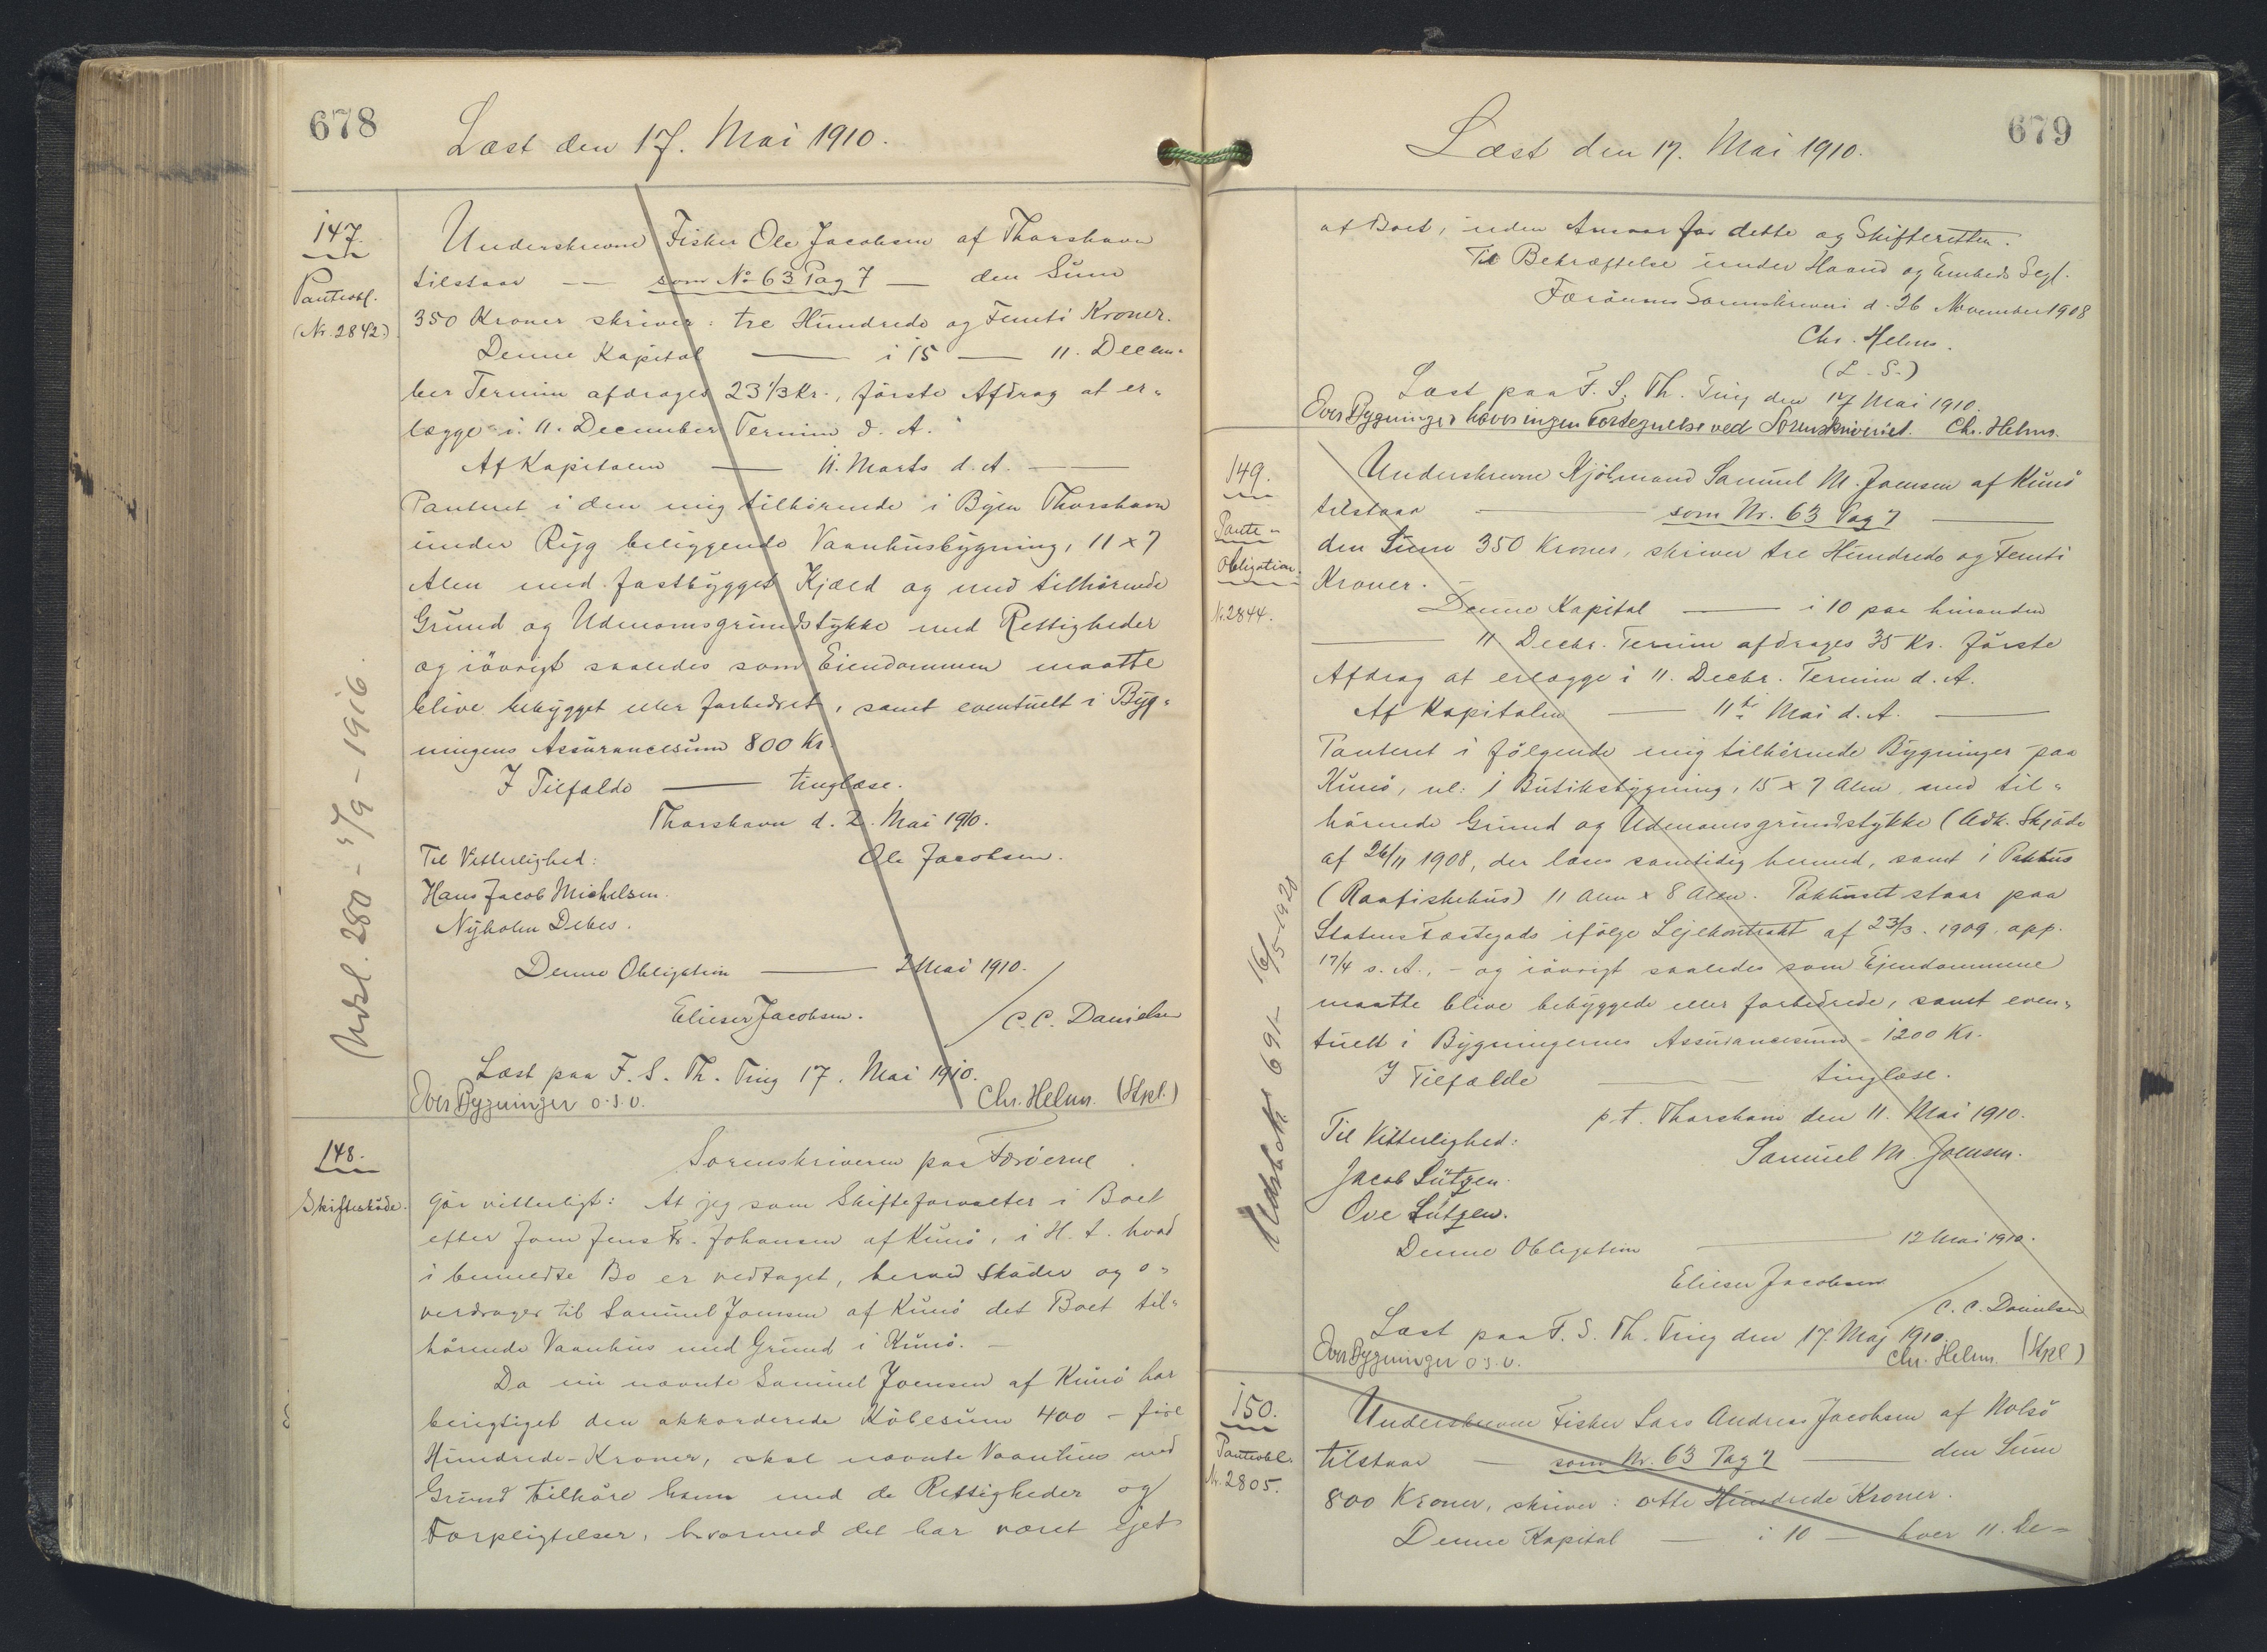 678
Læst den 17. Mai 1910.
147.
Panteobl.
(Nr. 2842)
Underskrevne Fisker Ole Jacobsen af Thorshavn
tilstaar — som No 63 Pag 7 — den Sum
350 Kroner skriver: tre Hundrede og Femti Kroner.
Denne Kapital — i 15 — 11. Decem-
ber Termin afdrages 23 1/3 Kr., første Afdrag at er-
lægge i 11. December Termin d. A.
Af Kapitalen — 11. Marts d. A. —
Panteret i den mig tilhørende i Byen Thorshavn
under Ryg beliggende Vaanhusbygning, 11 x 7
Alen med fastbygget Kjæld og med tilhørende
Grund og Udmarksgrundstykke med Rettigheder
og iøvrigt saaledes som Eiendommen maatte
blive bebygget eller forbedret, samt eventuelt i Byg-
ningens Assurancesum 800 Kr.
I Tilfælde — tinglæse.
Thorshavn d. 2. Mai 1910.
Til Vitterlighed: Ole Jacobsen.
Hans Jacob Michelsen.
Nyholm Debes.
Denne Obligation — 2 Mai 1910.
Elieser Jacobsen. / C. C. Danielsen
Læst paa F. S. Th. Ting 17. Mai 1910.
Over Bygninger o.s.v. Chr. Helms. (Stpl.)
Udsl. 280 - 5/9 - 1916.
148.
Skifteskøde.
Sorenskriveren paa Færøerne
gør vitterligt: At jeg som Skifteforvalter i Boet
efter Joen Jens Fr. Johansen af Kunø, i H. t. hvad
i bemeldte Bo er vedtaget, herved skøder og o-
verdrager til Samuel Joensen af Kunø det Boet til-
hørende Vaanhus med Grund i Kunø. —
Da nu nævnte Samuel Joensen af Kunø har
berigtiget den akkorderede Købesum 400 - fire
Hundrede - Kroner, skal nævnte Vaanhus med
Grund tilhøre ham med de Rettigheder og
Forpligtelser, hvormed det har været ejet
679
Læst den 17. Mai 1910.
af Boet, uden Ansvar for dette og Skifteretten.
Til Bekræftelse under Haand og Embeds Segl.
Færøernes Sorenskriveri d. 26 November 1908
Chr. Helms.
(L. S.)
Læst paa F. S. Th. Ting den 17 Mai 1910.
Over Bygninger haves ingen Fortegnelse ved Sorenskriveriet. Chr. Helms.
149.
Pante-
obligation.
Nr. 2844.
Underskrevne Kjøbmand Samuel M. Joensen af Kunø
tilstaar — som Nr. 63 Pag 7 —
den Sum 350 Kroner, skriver tre Hundrede og Femti
Kroner.
Denne Kapital — i 10 paa hinanden
— 11 Decbr. Termin afdrages 35 Kr. første
Afdrag at erlægge i 11. Decbr. Termin d. A.
Af Kapitalen — 11te Mai d. A. —
Panteret i følgende mig tilhørende Bygninger paa
Kunø, nl: 1 Butiksbygning, 15 x 7 Alen, med til-
hørende Grund og Udmarksgrundstykke (Adk. Skjøde
af 26/11 1908, der læses samtidig hermed, samt 1 Pakhus
(Raafiskehus) 11 Alen x 8 Alen. Pakhuset staar paa
Statens Fæstegods ifølge Lejekontrakt af 23/3. 1909, app.
17/4 s. A., - og iøvrigt saaledes som Ejendommene
maatte blive bebyggede eller forbedrede, samt even-
tuelt i Bygningernes Assurancesum - 1200 Kr.
I Tilfælde — tinglæse.
p. t. Thorshavn den 11. Mai 1910.
Til Vitterlighed: Samuel M. Joensen.
Jacob Lützen.
Ove Lützen.
Denne Obligation — 12 Mai 1910.
Elieser Jacobsen / C. C. Danielsen
Læst paa F. S. Th. Ting den 17. Maj 1910.
Over Bygninger o.s.v. Chr. Helms. (Stpl)
691 - 16/5 1928
150.
Panteobl.
Nr. 2805.
Underskrevne Fisker Lars Andreas Jacobsen af Nolsø
tilstaar — som Nr. 63 Pag 7 — den Sum
800 Kroner, skriver: otte Hundrede Kroner.
Denne Kapital — i 10 — hver 11. De-